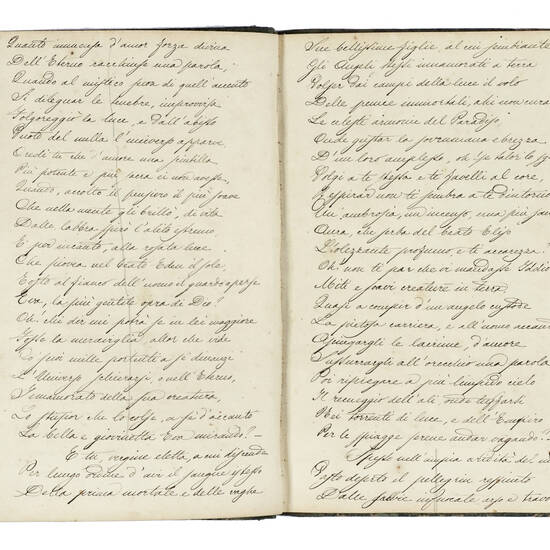 Quanto immensa d'amor forza divina
Dell'Eterno racchiuse una parola,
Quando al mistico suon di quell'accento
Si dileguar le tenebre, improvvisa
Folgoreggiò la luce, e dall'abisso
Vuoto del nulla l'universo apparve
Credi tu che d'amore una scintilla
Più potente e più sacra ei non avesse,
Quando, accolto il pensiero il più soave
Che nella mente gli brillò, di vita
Dalle labbra spirò l'alito estremo,
E poi incantò, alla rosata luce
Che pioveva nel beato Eden il sole,
Egli al fianco dell'uomo il guardo aperse
Eva, la più gentile opra di Dio?
Oh! chi dir mi potrà se in lei maggiore
Fosse la meraviglia, allor che vide
Co' suoi mille portenti a sè dinanzi
L'Universo schierarsi, o nell'Eterno,
Innamorato della sua creatura,
Lo stupor che lo colse, a sè d'accanto
La bella e giovinetta Eva mirando? —
E tu, vergine eletta, a cui discende
Per lungo ordine d'avi il sangue stesso
Della prima mortale e delle vaghe
Sue bellissime figlie, al cui sembiante
Gli Angeli stessi innamorati a terra
Volser dai campi della luce il volo
Delle penne immortali, obli non cura
Le celesti armonie del Paradiso,
Onde gustar la sovrumana ebrezza
D'un loro amplesso, oh! se talor lo
Volgi a te stessa e te favelli al core,
Respirar non ti sembra a te d'intorno
Un'ambrosia, un incenso, una più
Aura, che serba del beato Eliso
L'olezzante profumo, e te accarezza?
Oh! non ti par che vi mandasse Iddio
Miti e soavi creature in terra
Quasi a compier d'un angelo custode
La pietosa carriera, e all'uomo accanto
Asciugargli le lacrime d'amore
Sussurrargli all'orecchio una parola
Per rispiegare a più limpido cielo
Il remeggio dell'ali onde tuffarti
Nei torrenti di luce, e dell'Empiro
Per le spiagge serene andar vagando?
Spesso nell'ampia aridità del
Veste deserto il pellegrin
Dalle fauci infuocate arso e